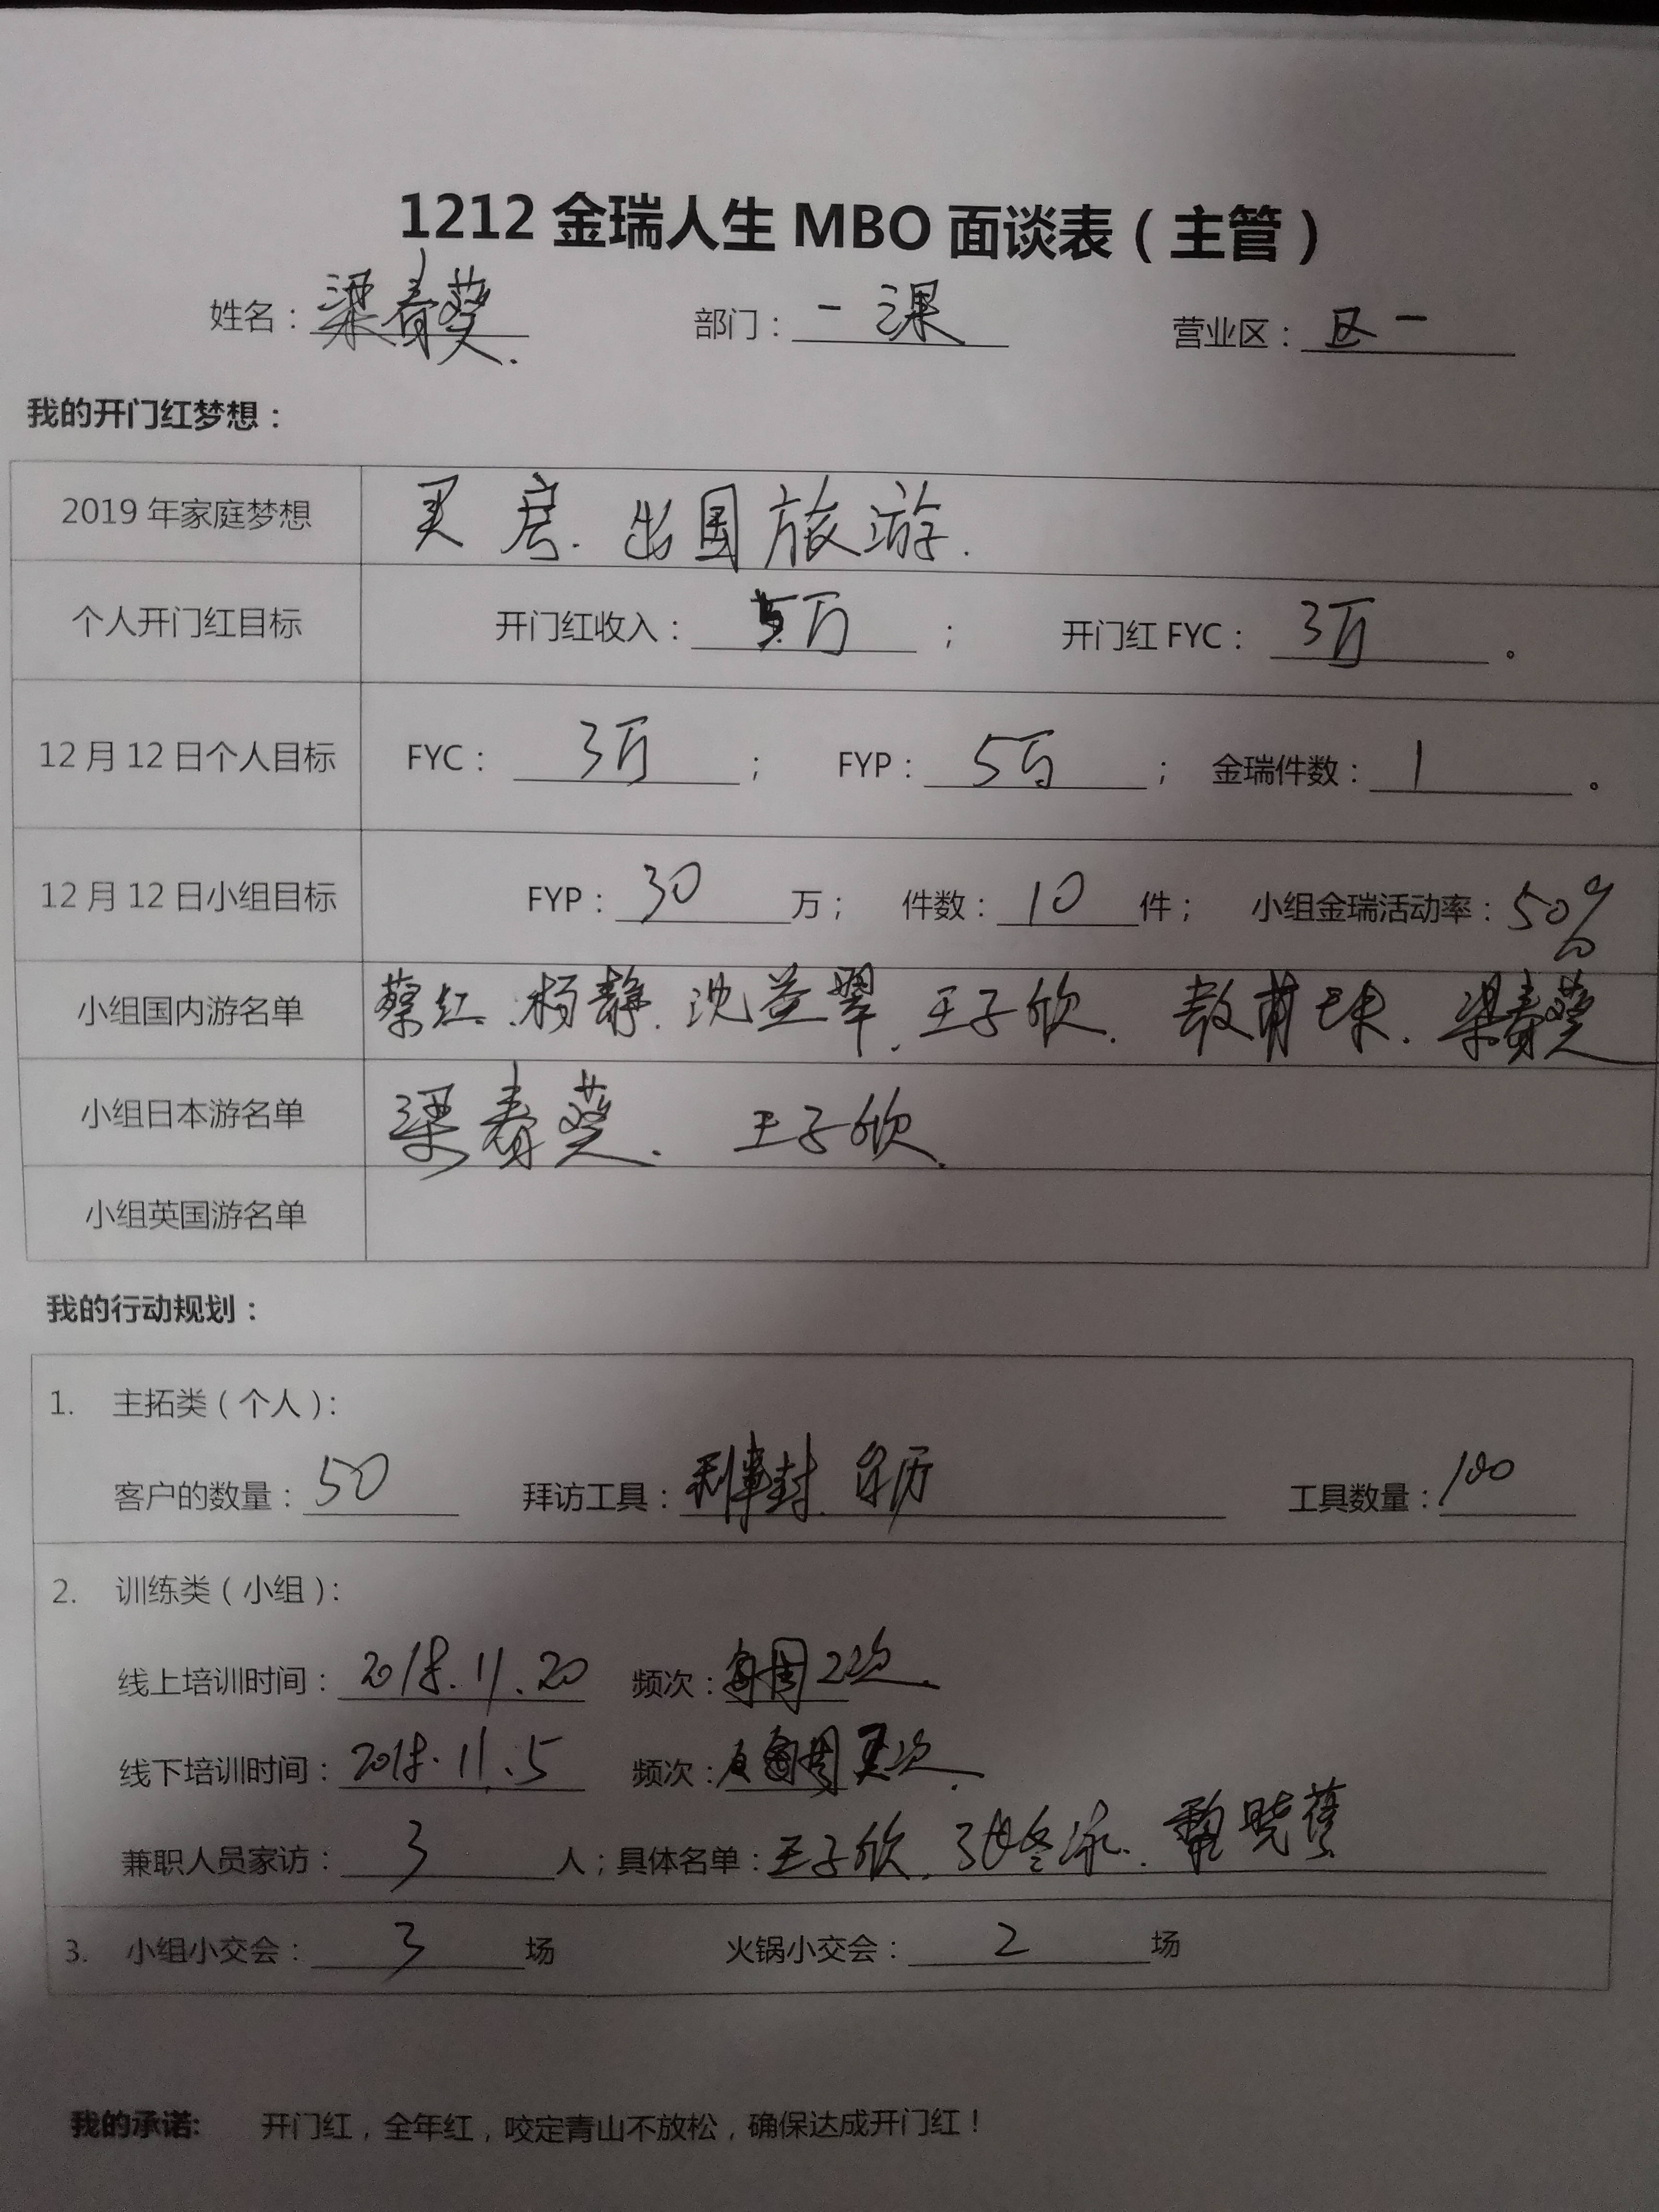 1212 金瑞人生 MBO 面谈表（主管）
姓名：梁春葵. 部门：一课 营业区：区一
我的开门红梦想：
2019 年家庭梦想 买房. 出国旅游.
个人开门红目标 开门红收入：5万； 开门红 FYC：3万。
12 月 12 日个人目标 FYC：3万； FYP：5万； 金瑞件数：1。
12 月 12 日小组目标 FYP：30万； 件数：10件； 小组金瑞活动率：50%
小组国内游名单 蔡红. 杨静. 沈益翠. 王子欣. 敖甫球. 梁春葵
小组日本游名单 梁春葵. 王子欣.
小组英国游名单
我的行动规划：
1. 主拓类（个人）：
客户的数量：50 拜访工具：利事封. 台历 工具数量：100
2. 训练类（小组）：
线上培训时间：2018.11.20 频次：每周2次.
线下培训时间：2018.11.5 频次：每周 次.
兼职人员家访：3人；具体名单：王子欣. 张冬 . 晓蓓
3. 小组小交会：3场 火锅小交会：2场
我的承诺: 开门红，全年红，咬定青山不放松，确保达成开门红！